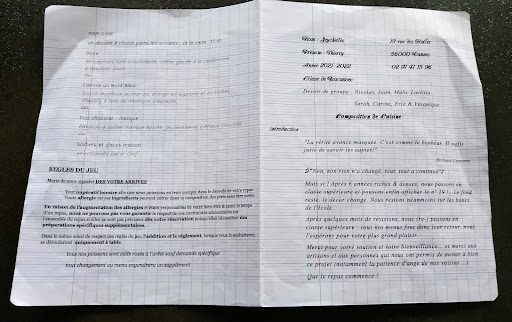 POUR CLORE
un dessert à choisir parmi les suivants : (à la carte
ou
Comme un Mont-Blanc
ou
Trop chocolat - mangue
ou
Sorbets et glaces maison
sélectionnés par le Chef
REGLES DU JEU
Merci de nous signaler DES VOTRE ARRIVEE
Tout impératif horaire afin que nous puissions en tenir compte dans le déroulé de votre repas
Toute allergie car des ingrédients peuvent entrer dans la composition des plats sans être notés.
En raison de l'augmentation des allergies et étant responsables de votre bien-être le temps
d'un repas, nous ne pouvons pas vous garantir le respect de vos contraintes alimentaires sur
l'ensemble du repas si elles ne sont pas précisées dès votre réservation puisqu'elles nécessitent des
préparations spécifiques supplémentaires.
Dans le même souci du respect des règles du jeu, l'addition et le règlement, lorsque vous le souhaiterez,
se dérouleront uniquement à table.
tous nos poissons sont cuits rosés à l'arête sauf demande spécifique
tout changement au menu engendrera un supplément
Nom : Seychelles 19 rue des Halles
Prénom : Thierry 56000 Vannes
Année 2021-2022 02 97 47 15 96
Classe de
Devoir de groupe : Nicolas, Juan, Malo, Laetitia
Sarah, Carine, Eric & Véronique
Composition de Cuisine
Introduction
"La vérité avance masquée. C'est comme le bonheur. Il suffit
juste de savoir les capter!"
Richard
"Non, non rien n'a changé, tout, tout a continué"
Mais si ! Après 6 années riches & denses, nous passons en
classe supérieure et posons enfin afficher le n° 19 !. Le fond
reste, le décor change. Nous restons néanmoins sur les bancs
de l'école.
Après quelques mois de révisions, nous (re-) passons en
classe supérieure : tout nos menus font donc leur retour, nous
l'espérons pour votre plus grand plaisir.
Merci pour votre soutien et votre bienveillance... et merci aux
artisans et aux personnes qui nous ont permis de mener à bien
ce projet (notamment la patience d'ange de nos voisins...)
Que le repas commence !